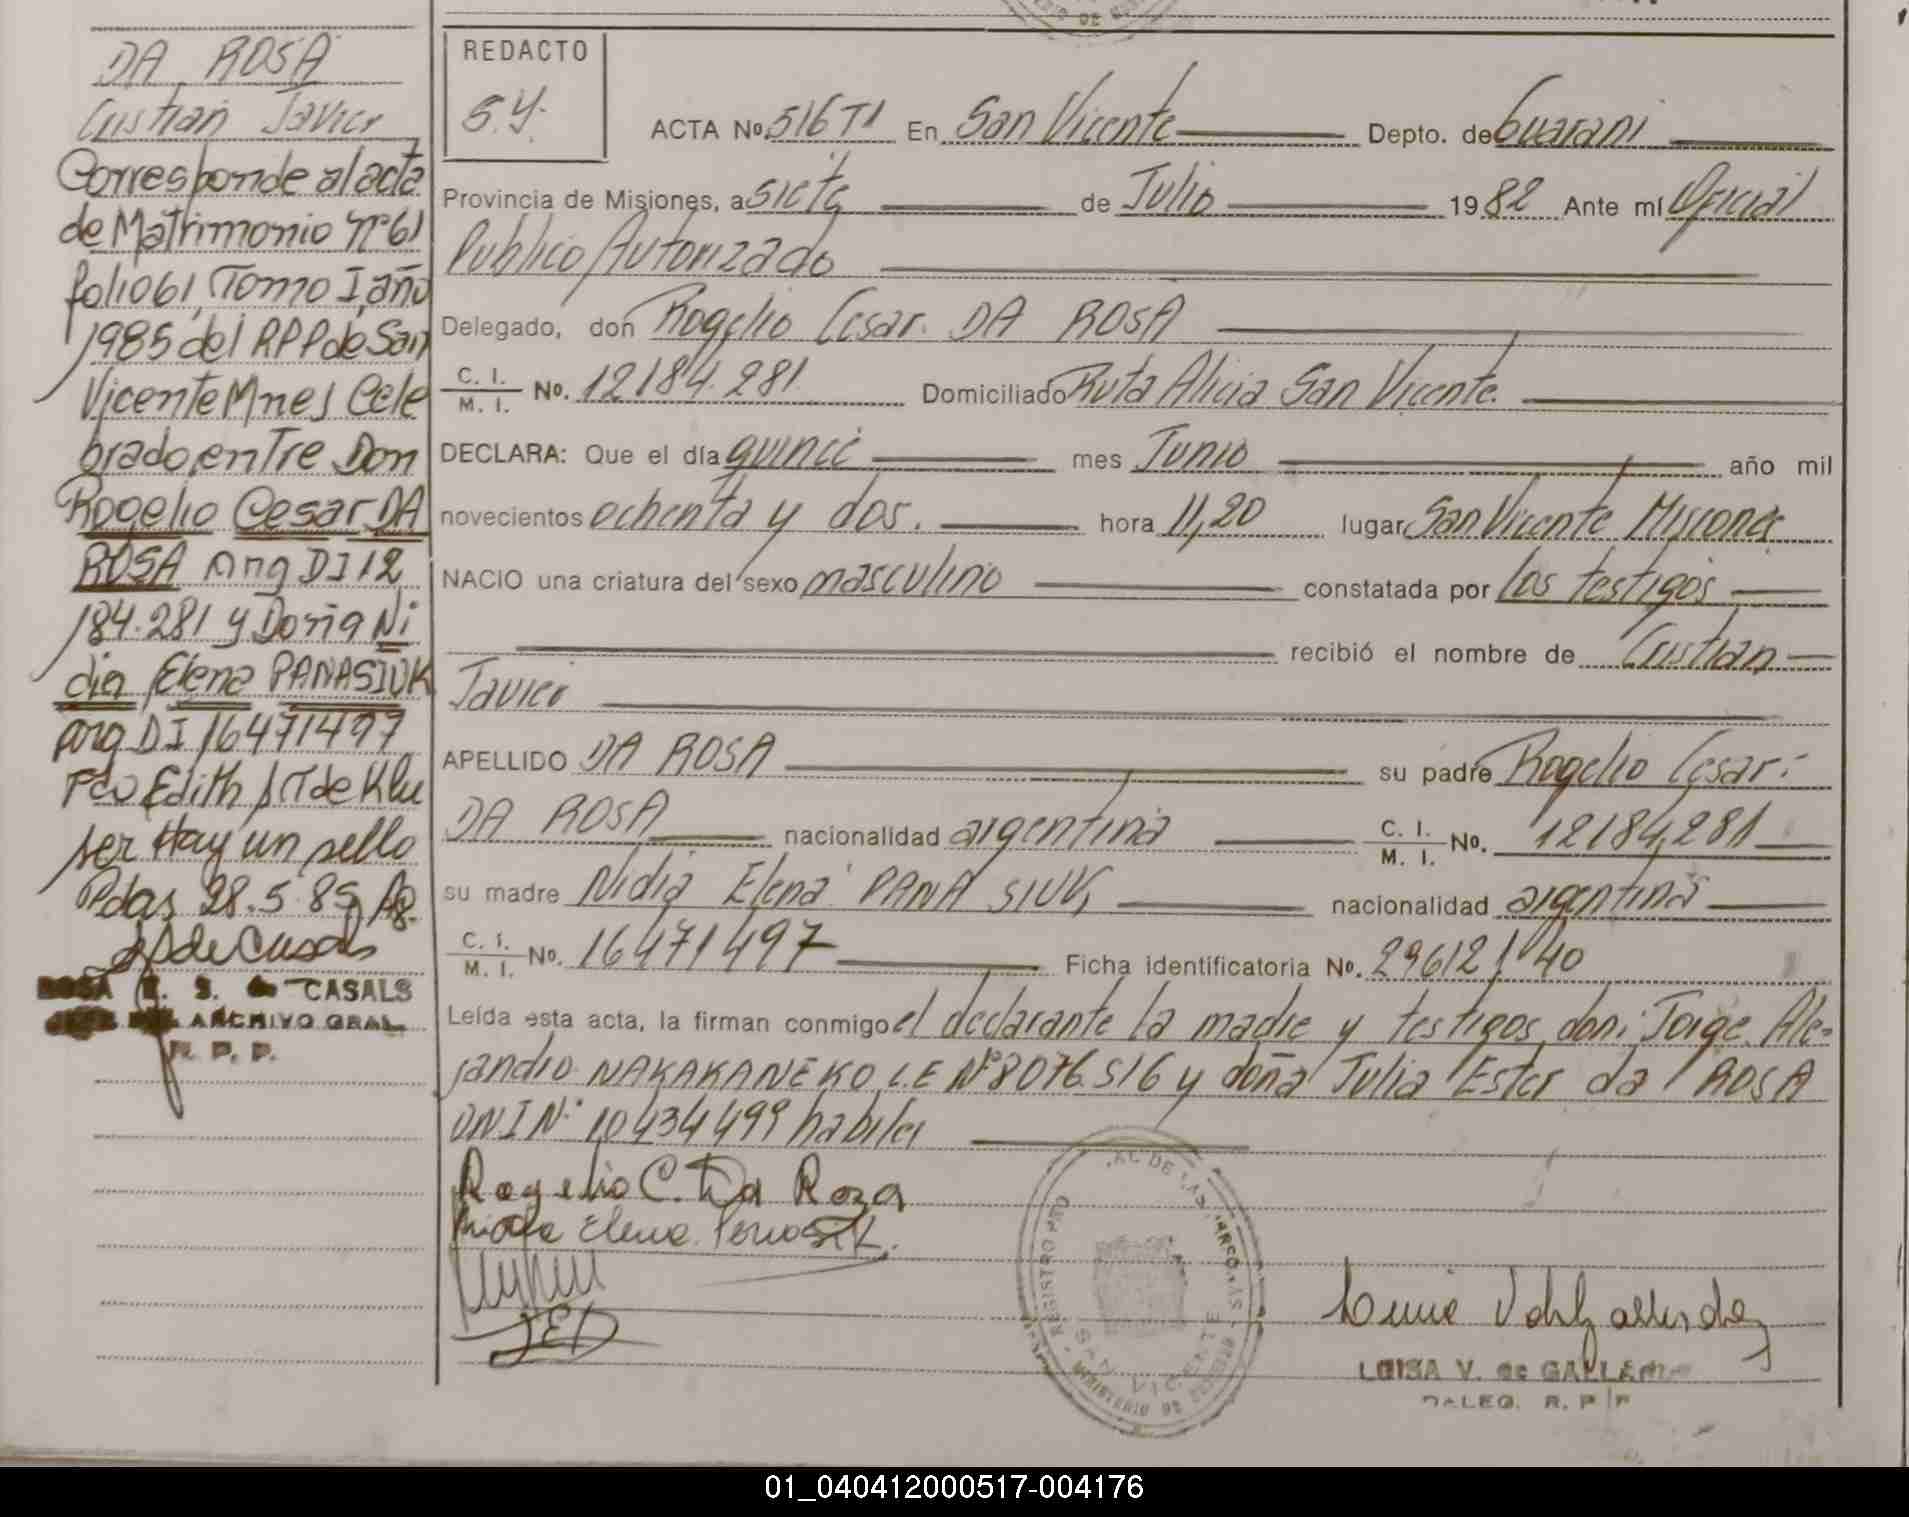 DA ROSA
Cristian Javier
Corresponde al acta
de Matrimonio nº 61
folio 61, Tomo I, año
1985 del RPP de San
Vicente Mnes Cele
brado, entre Don
Rogelio Cesar DA
ROSA Arg DI 12
184.281 y Doña Ni
dia Elena PANASIUK
arg DI 16471497
Fdo Edith de Klu
ser Hay un sello
Pdas 28.5.85
de Casals
ROSA E. S. de CASALS
JEFE DEL ARCHIVO GRAL.
R. P. P.
REDACTO
S.Y.
ACTA No. 516 T1 En San Vicente Depto. de Guarani
Provincia de Misiones, a siete de Julio 1982 Ante mí Oficial
Publico Autorizado
Delegado, don Rogelio Cesar. DA ROSA
C. I. / M. I. No. 12184.281. Domiciliado Ruta Alicia San Vicente.
DECLARA: Que el día quince mes Junio año mil
novecientos ochenta y dos. hora 11,20 lugar San Vicente Misiones
NACIO una criatura del sexo masculino constatada por los testigos
recibió el nombre de Cristian
Javier
APELLIDO DA ROSA su padre Rogelio Cesar
DA ROSA nacionalidad argentina C. I. / M. I. No. 12184,281
su madre Nidia Elena PANA SIUK, nacionalidad argentina
C. I. / M. I. No. 16471497 Ficha identificatoria No. 296121/40
Leída esta acta, la firman conmigo el declarante la madre y testigos, don: Jorge Ale=
jandro NAKAKANEKO L.E Nº 8076.516 y doña Julia Ester da ROSA
DNI Nº 10434499 habiles
Rogelio C. Da Roza
Elena
JED
REGISTRO
SAN VICENTE
LUISA V. de
DELEG. R. P. P
01_040412000517-004176